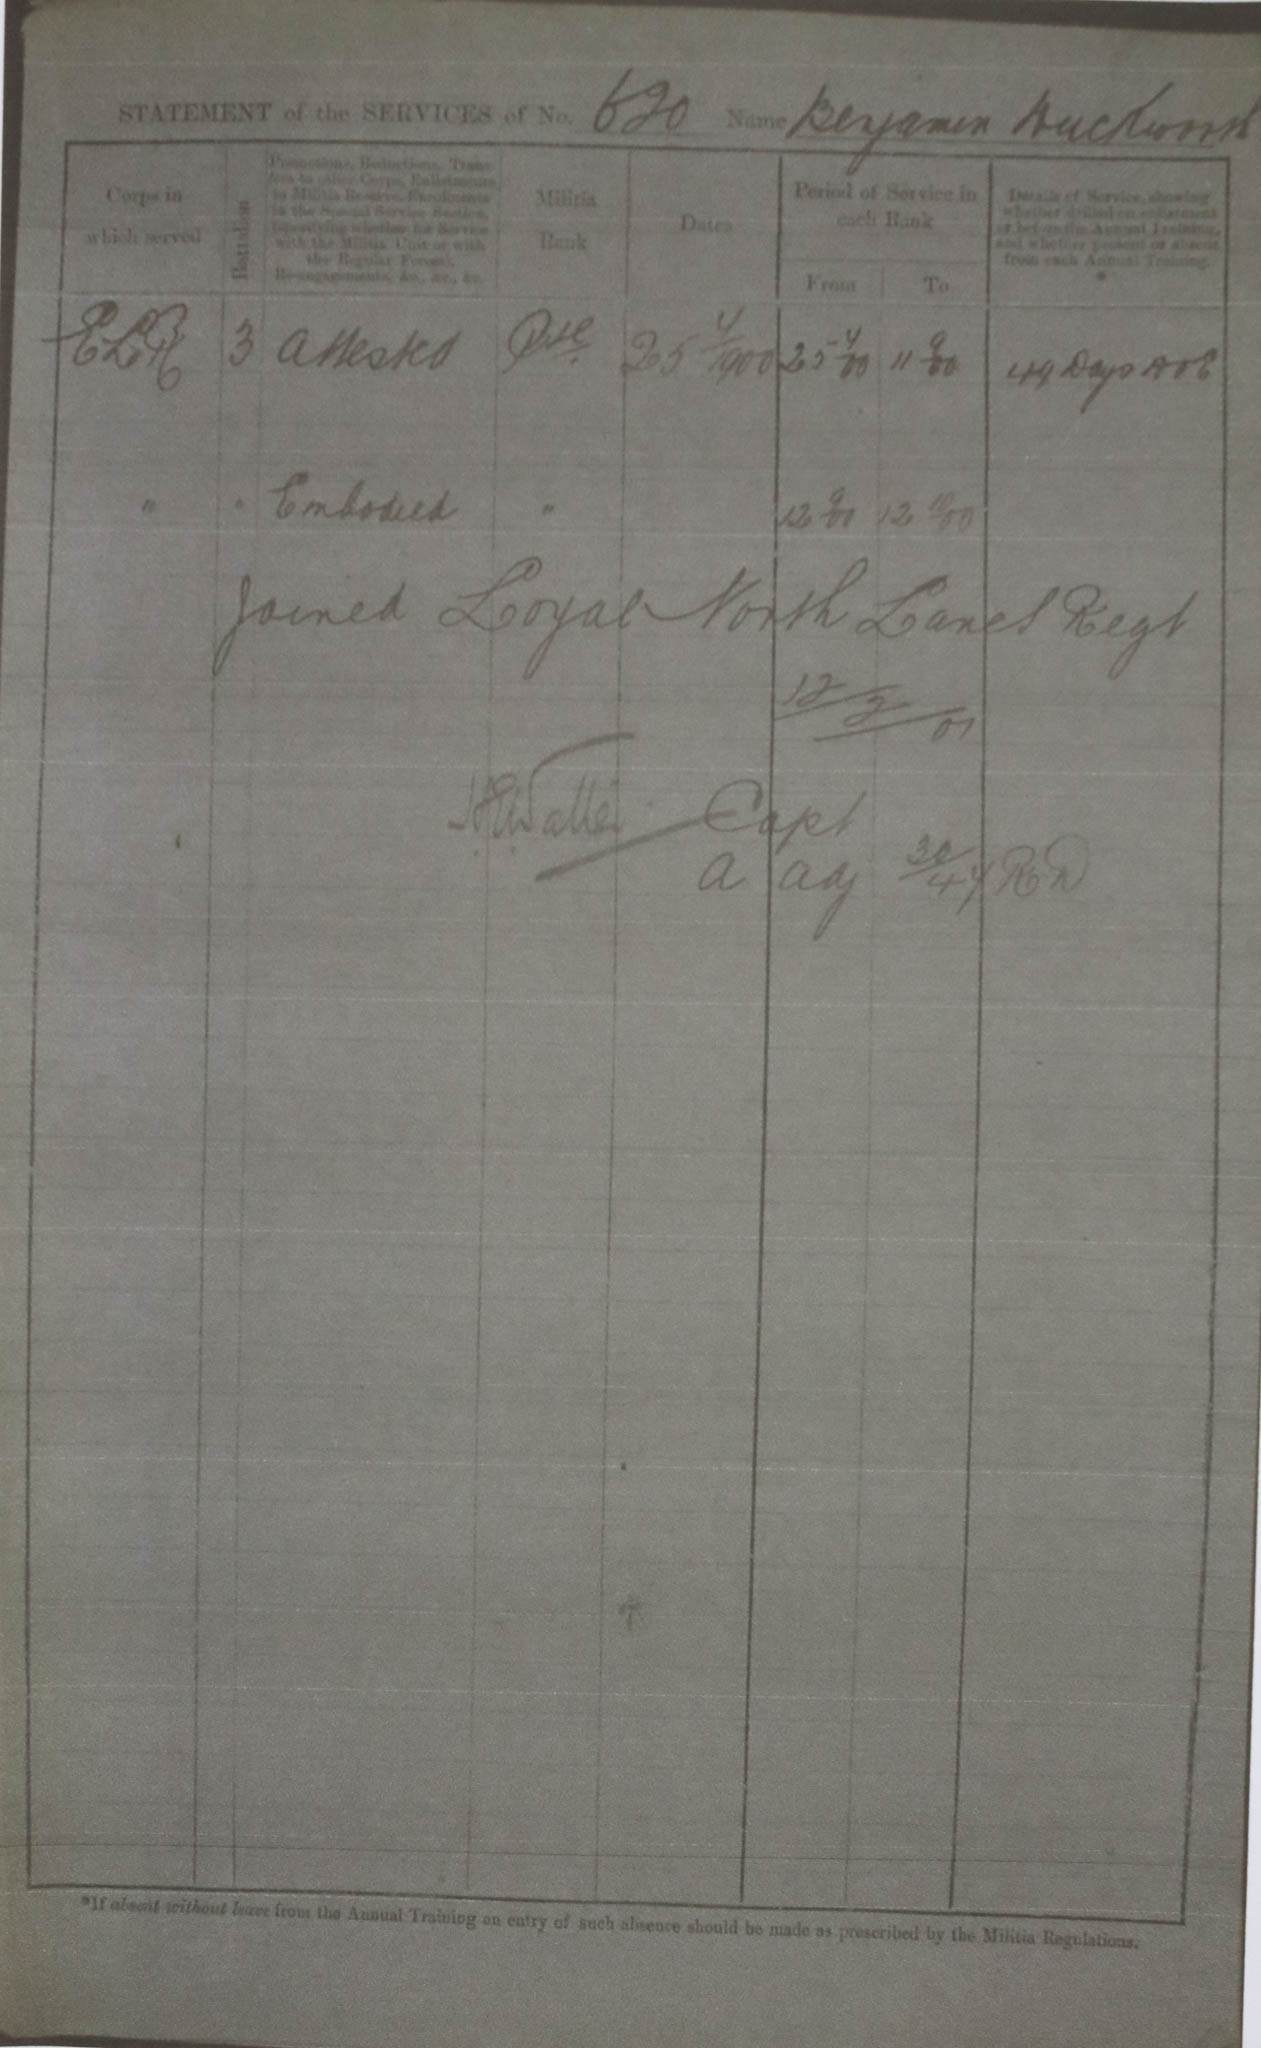 STATEMENT of the SERVICES of No. 620 Name Benjamin Duckworth
Corps in which served
Battalion
Promotions, Reductions, Trans-
fers to other Corps, Enlistments
in Militia Reserve, Enrolments
in the Special Service Section,
(specifying whether for Service
with the Militia Unit or with
the Regular Forces),
Re-engagements, &c., &c., &c.
Militia Rank
Dates
Period of Service in each Rank
From To
Details of Service, showing
whether drilled on enlistment
or before the Annual Training,
and whether present or absent
from each Annual Training.
*
ELR 3 Attested Pte. 25/4/1900 25/4/00 11/9/00 49 Days D O E
" " Embodied " 12/9/00 12/10/00
Joined Loyal North Lancs Regt
12/3/01
Capt
A Adj 30/47 RD
*If absent without leave from the Annual Training an entry of such absence should be made as prescribed by the Militia Regulations.